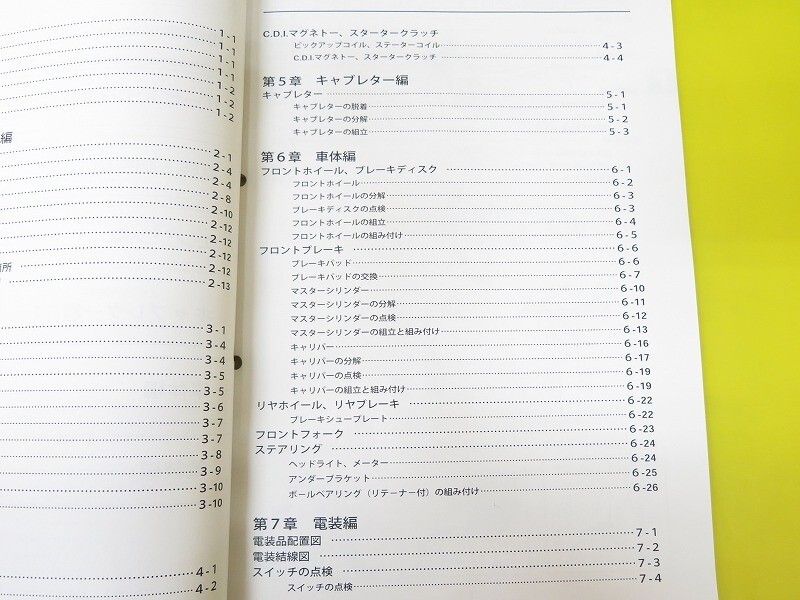 1-1
1-1
1-1
1-1
1-2
1-2
1-2
編
2-1
2-4
2-4
2-8
2-10
2-12
2-12
2-12
所 2-12
2-13
3-1
3-4
3-4
3-5
3-5
3-6
3-7
3-7
3-8
3-9
3-10
3-10
4-1
4-2
C.D.I.マグネトー、スタータークラッチ
ピックアップコイル、ステーターコイル 4-3
C.D.I.マグネトー、スタータークラッチ 4-4
第5章 キャブレター編
キャブレター 5-1
キャブレターの脱着 5-1
キャブレターの分解 5-2
キャブレターの組立 5-3
第6章 車体編
フロントホイール、ブレーキディスク 6-1
フロントホイール 6-2
フロントホイールの分解 6-3
ブレーキディスクの点検 6-3
フロントホイールの組立 6-4
フロントホイールの組み付け 6-5
フロントブレーキ 6-6
ブレーキパッド 6-6
ブレーキパッドの交換 6-7
マスターシリンダー 6-10
マスターシリンダーの分解 6-11
マスターシリンダーの点検 6-12
マスターシリンダーの組立と組み付け 6-13
キャリパー 6-16
キャリパーの分解 6-17
キャリパーの点検 6-19
キャリパーの組立と組み付け 6-19
リヤホイール、リヤブレーキ 6-22
ブレーキシュープレート 6-22
フロントフォーク 6-23
ステアリング 6-24
ヘッドライト、メーター 6-24
アンダーブラケット 6-25
ボールベアリング（リテーナー付）の組み付け 6-26
第7章 電装編
電装品配置図 7-1
電装結線図 7-2
スイッチの点検 7-3
スイッチの点検 7-4